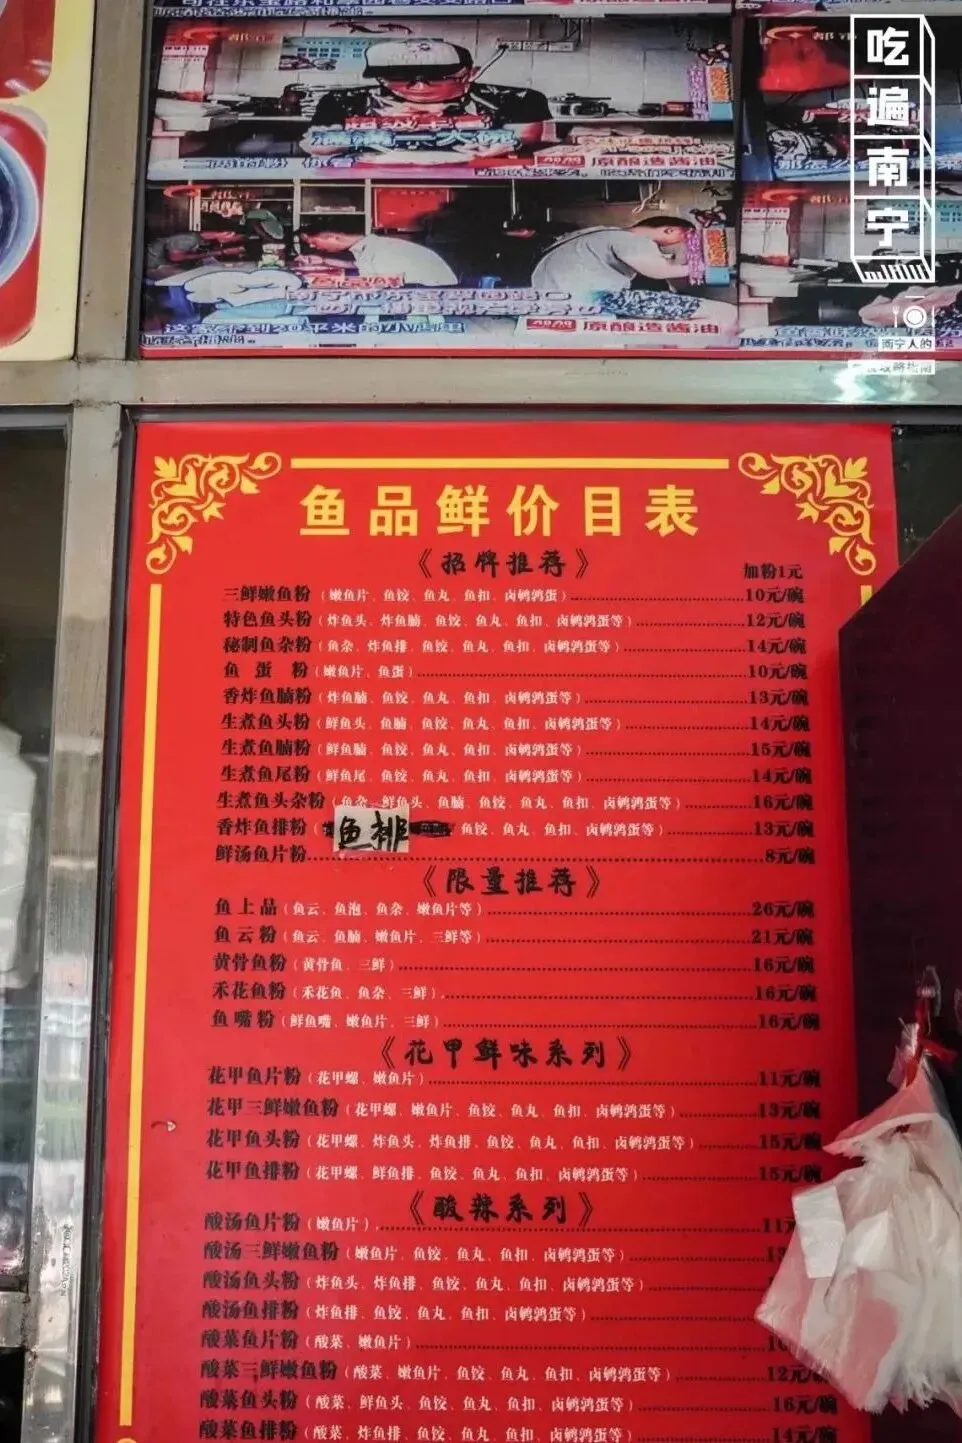 吃遍南宁
南宁人的
原酿造酱油
原酿造酱油
这家不到20平米的小店里
鱼品鲜价目表
《招牌推荐》
加粉1元
三鲜嫩鱼粉（嫩鱼片、鱼饺、鱼丸、鱼扣、卤鹌鹑蛋）10元/碗
特色鱼头粉（炸鱼头、炸鱼腩、鱼饺、鱼丸、鱼扣、卤鹌鹑蛋等）12元/碗
秘制鱼杂粉（鱼杂、炸鱼排、鱼饺、鱼丸、鱼扣、卤鹌鹑蛋等）14元/碗
鱼蛋粉（嫩鱼片、鱼蛋）10元/碗
香炸鱼腩粉（炸鱼腩、鱼饺、鱼丸、鱼扣、卤鹌鹑蛋等）13元/碗
生煮鱼头粉（鲜鱼头、鱼腩、鱼饺、鱼丸、鱼扣、卤鹌鹑蛋等）14元/碗
生煮鱼腩粉（鲜鱼腩、鱼饺、鱼丸、鱼扣、卤鹌鹑蛋等）15元/碗
生煮鱼尾粉（鲜鱼尾、鱼饺、鱼丸、鱼扣、卤鹌鹑蛋等）14元/碗
生煮鱼头杂粉（鱼杂、鲜鱼头、鱼腩、鱼饺、鱼丸、鱼扣、卤鹌鹑蛋等）16元/碗
香炸鱼排粉（鱼排 鱼饺、鱼丸、鱼扣、卤鹌鹑蛋等）13元/碗
鲜汤鱼片粉8元/碗
《限量推荐》
鱼上品（鱼云、鱼泡、鱼杂、嫩鱼片等）26元/碗
鱼云粉（鱼云、鱼腩、嫩鱼片、三鲜等）21元/碗
黄骨鱼粉（黄骨鱼、三鲜）16元/碗
禾花鱼粉（禾花鱼、鱼杂、三鲜）16元/碗
鱼嘴粉（鲜鱼嘴、嫩鱼片、三鲜）16元/碗
《花甲鲜味系列》
花甲鱼片粉（花甲螺、嫩鱼片）11元/碗
花甲三鲜嫩鱼粉（花甲螺、嫩鱼片、鱼饺、鱼丸、鱼扣、卤鹌鹑蛋等）13元/碗
花甲鱼头粉（花甲螺、炸鱼头、炸鱼排、鱼饺、鱼丸、鱼扣、卤鹌鹑蛋等）15元/碗
花甲鱼排粉（花甲螺、鲜鱼排、鱼饺、鱼丸、鱼扣、卤鹌鹑蛋等）15元/碗
《酸辣系列》
酸汤鱼片粉（嫩鱼片）11
酸汤三鲜嫩鱼粉（嫩鱼片、鱼饺、鱼丸、鱼扣、卤鹌鹑蛋等）
酸汤鱼头粉（炸鱼头、炸鱼排、鱼饺、鱼丸、鱼扣、卤鹌鹑蛋等）
酸汤鱼排粉（炸鱼排、鱼饺、鱼丸、鱼扣、卤鹌鹑蛋等）
酸菜鱼片粉（酸菜、嫩鱼片）
酸菜三鲜嫩鱼粉（酸菜、嫩鱼片、鱼饺、鱼丸、鱼扣、卤鹌鹑蛋等）12元
酸菜鱼头粉（酸菜、鲜鱼头、鱼饺、鱼丸、鱼扣、卤鹌鹑蛋等）16元/碗
酸菜鱼排粉（酸菜、炸鱼排、鱼饺、鱼丸、鱼扣、卤鹌鹑蛋等）14元/碗